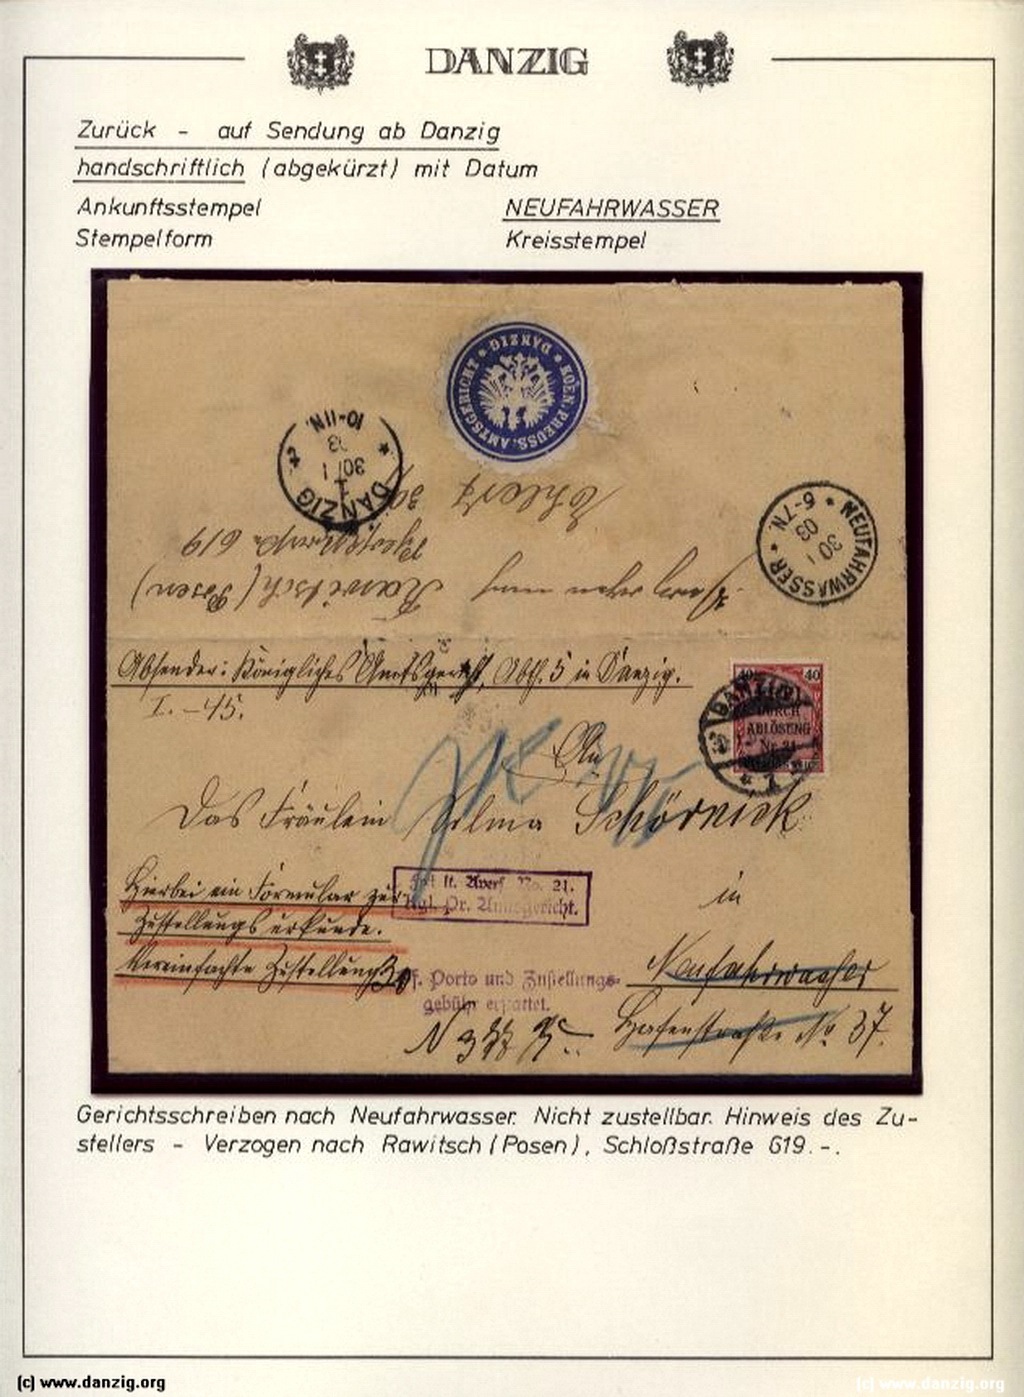 DANZIG
Zurück - auf Sendung ab Danzig
handschriftlich (abgekürzt) mit Datum
Ankunftsstempel NEUFAHRWASSER
Stempelform Kreisstempel
KOEN. PREUSS. AMTSGERICHT * DANZIG *
DANZIG
1
30/1
03
10-11N.
NEUFAHRWASSER
30 1
03
6-7N.
Ehlert 30/1
Verzogen nach Rawitsch (Posen)
619
Absender: Königliches Amtsgericht, Abth. 5 in Danzig.
I. - 45.
40 40
DURCH
ABLÖSUNG
Nr. 21
DANZIG
An
Das Fräulein Selma Schörnick
in
Hierbei ein Formular zur
Zustellungsurkunde.
Vereinfachte Zustellung
Frei lt. Avers. No. 21.
Kgl. Pr. Amtsgericht.
Porto und Zustellungs-
gebühr erstattet.
Neufahrwasser
Hafenstraße No 37.
Gerichtsschreiben nach Neufahrwasser. Nicht zustellbar. Hinweis des Zu-
stellers - Verzogen nach Rawitsch (Posen), Schloßstraße 619.-.
(c) www.danzig.org
(c) www.danzig.org